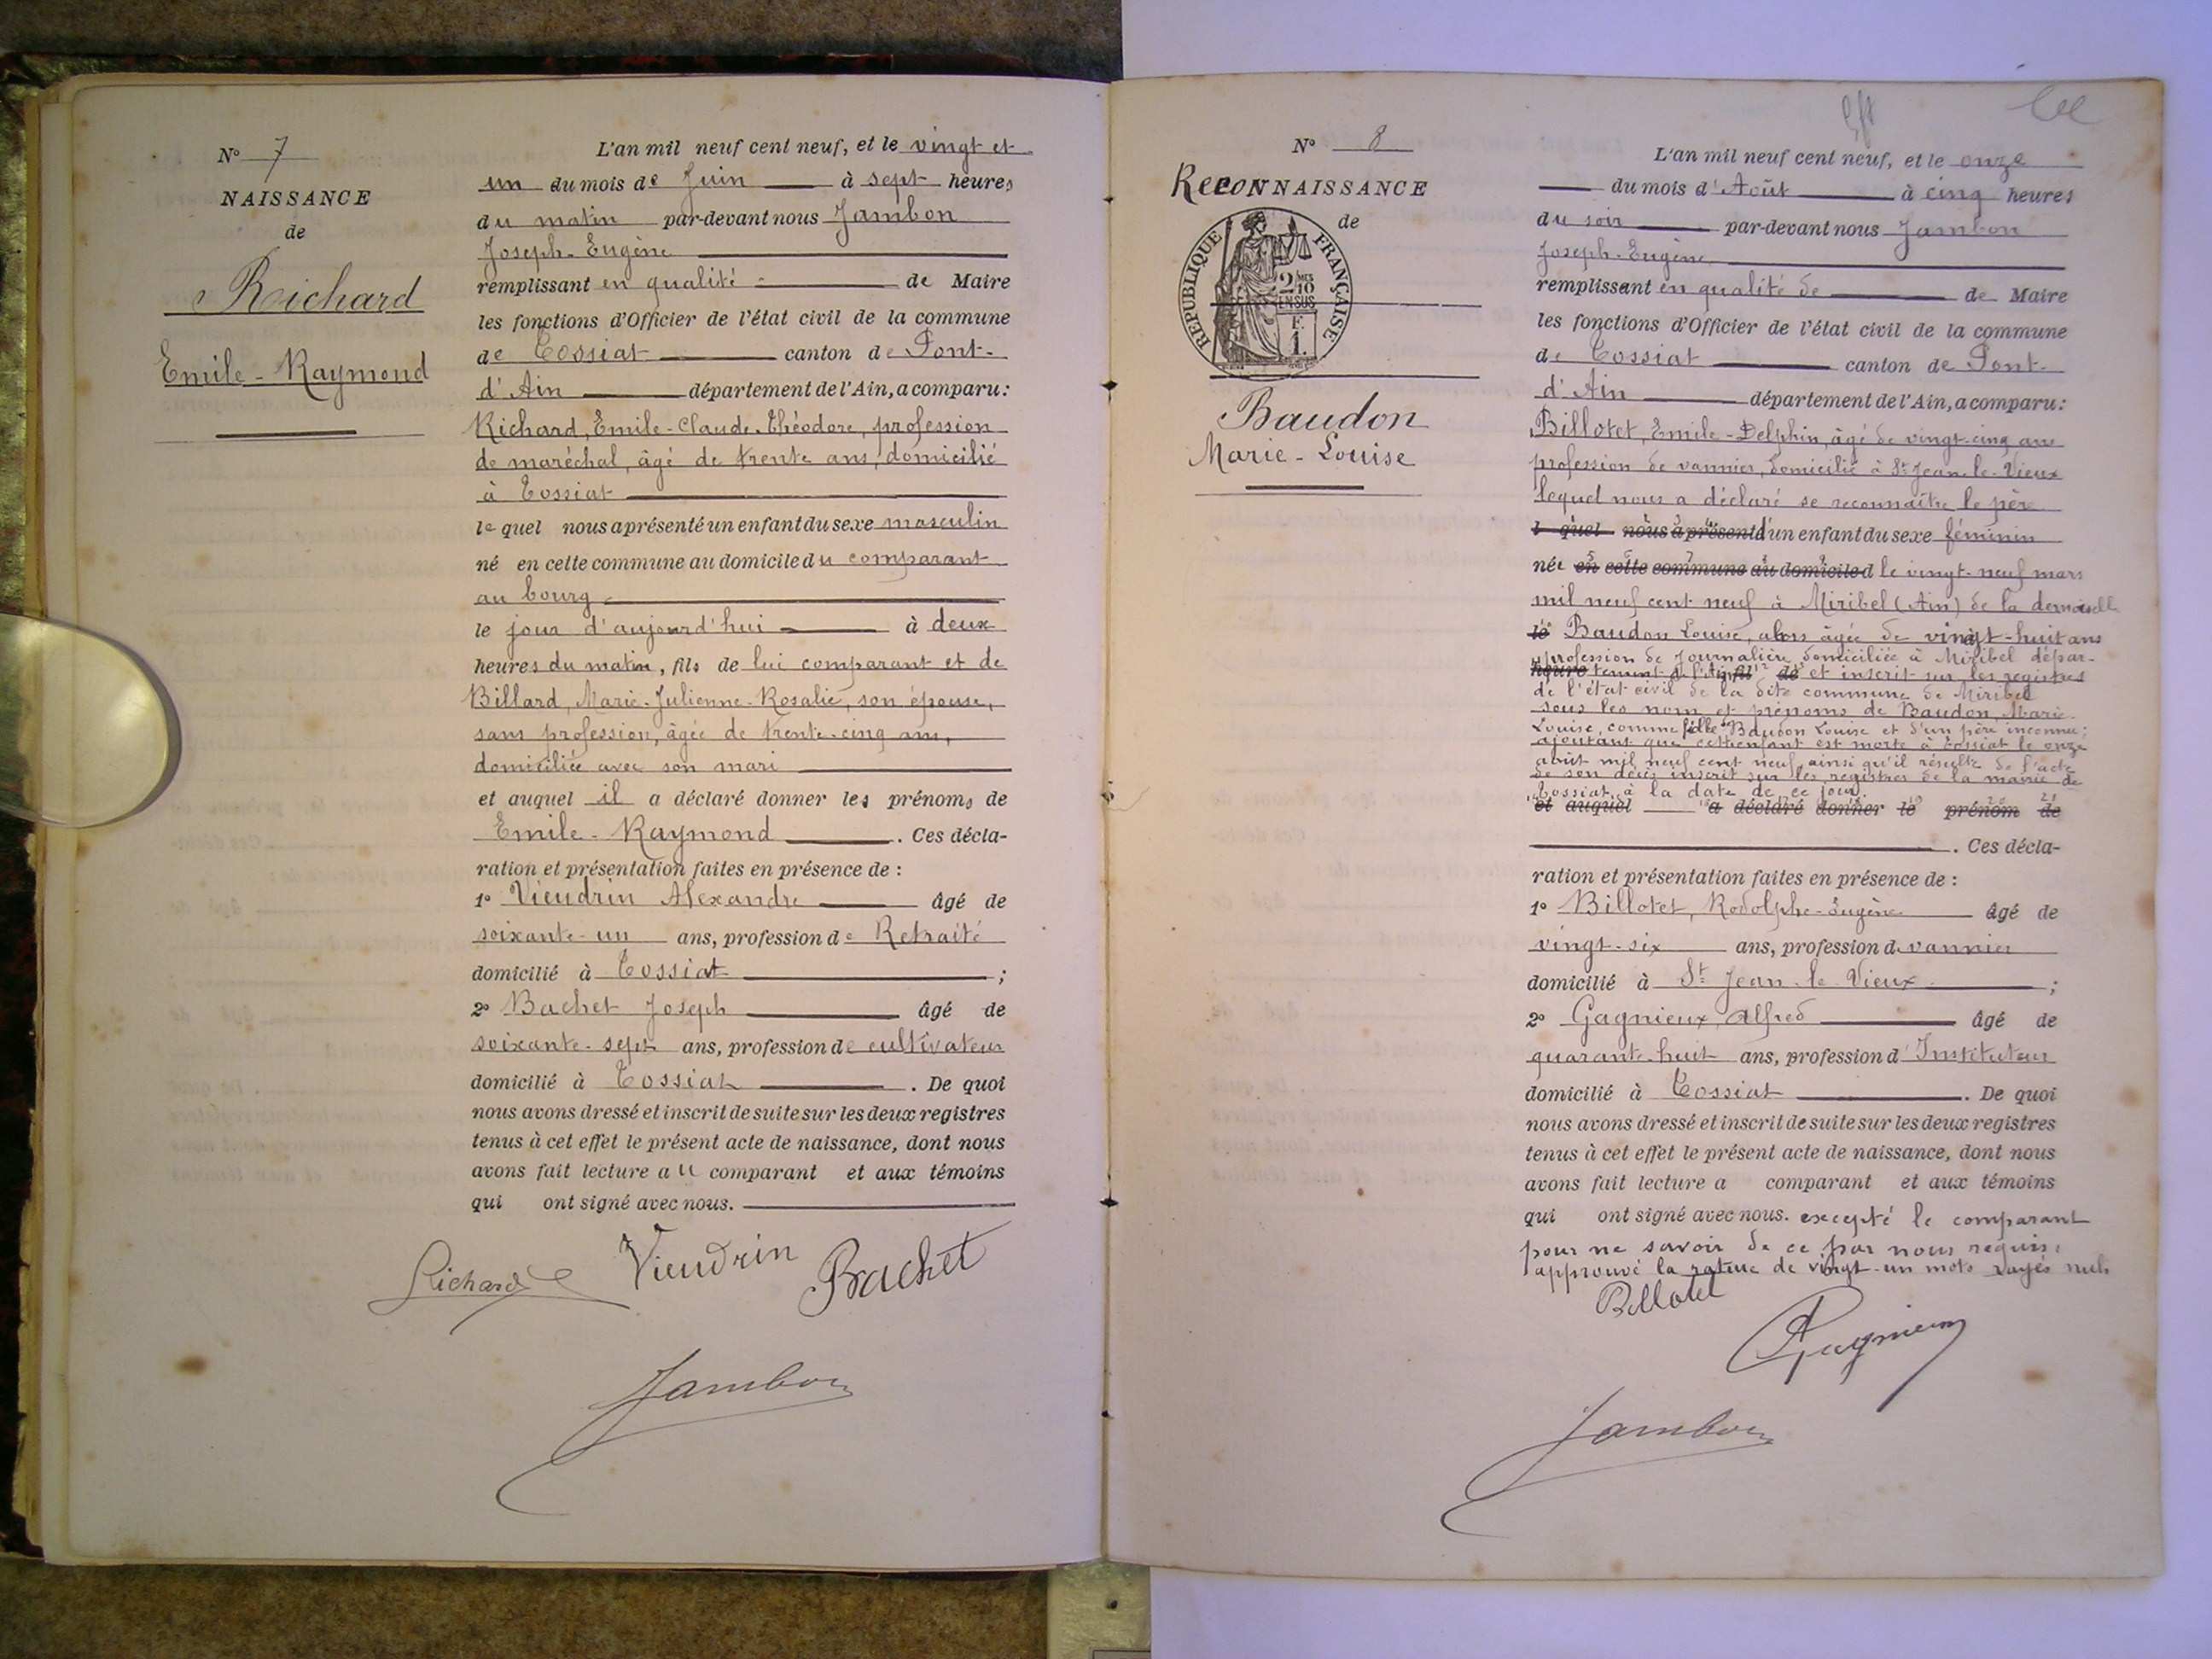 N° 7
NAISSANCE
de
Richard
Emile - Raymond
L'an mil neuf cent neuf, et le vingt et
un du mois de Juin à sept heures
du matin par-devant nous Jambon
Joseph-Eugène
remplissant en qualité de Maire
les fonctions d'Officier de l'état civil de la commune
de Tossiat canton de Pont-
d'Ain département de l'Ain, a comparu:
Richard, Emile-Claude-Théodore, profession
de maréchal, âgé de trente ans, domicilié
à Tossiat
lequel nous a présenté un enfant du sexe masculin
né en cette commune au domicile du comparant
au bourg
le jour d'aujourd'hui à deux
heures du matin, fils de lui comparant et de
Billard, Marie-Julienne-Rosalie, son épouse,
sans profession, âgée de trente-cinq ans,
domiciliée avec son mari
et auquel il a déclaré donner les prénoms de
Emile-Raymond. Ces décla-
ration et présentation faites en présence de :
1° Vieudrin Alexandre âgé de
soixante-un ans, profession de Retraité
domicilié à Tossiat ;
2° Bachet Joseph âgé de
soixante-sept ans, profession de cultivateur
domicilié à Tossiat. De quoi
nous avons dressé et inscrit de suite sur les deux registres
tenus à cet effet le présent acte de naissance, dont nous
avons fait lecture au comparant et aux témoins
qui ont signé avec nous.
Richard Vieudrin Bachet
Jambon
N° 8
RECONNAISSANCE
de
REPUBLIQUE FRANÇAISE
2/10
EN SUS
F.
1.
Baudon
Marie-Louise
L'an mil neuf cent neuf, et le onze
du mois d'Août à cinq heures
du soir par-devant nous Jambon
Joseph-Eugène
remplissant en qualité de de Maire
les fonctions d'Officier de l'état civil de la commune
de Tossiat canton de Pont-
d'Ain département de l'Ain, a comparu:
Billotet, Emile-Delphin, âgé de vingt-cinq ans
profession de vannier, domicilié à St Jean-le-Vieux
lequel nous a déclaré se reconnaître le père
l quel nous a présenté d'un enfant du sexe féminin
née en cette commune au domicile d le vingt-neuf mars
mil neuf cent neuf à Miribel (Ain) de la demoiselle
le Baudon Louise, alors âgée de vingt-huit ans
profession de Journalière domiciliée à Miribel dépar-
heure tement de l'Ain fil de et inscrit sur les registres
de l'état civil de la dite commune de Miribel
sous les nom et prénoms de Baudon, Marie-
Louise, comme fille Baudon Louise et d'un père inconnu;
ajoutant que cet enfant est morte à Tossiat le onze
août mil neuf cent neuf, ainsi qu'il résulte de l'acte
de son décès inscrit sur les registres de la mairie de
Tossiat, à la date de ce jour.
et auquel a déclaré donner le prénom de
. Ces décla-
ration et présentation faites en présence de :
1° Billotet, Rodolphe-Eugène âgé de
vingt-six ans, profession de vannier
domicilié à St Jean-le-Vieux ;
2° Gagnieux, Alfred âgé de
quarante-huit ans, profession d'Instituteur
domicilié à Tossiat. De quoi
nous avons dressé et inscrit de suite sur les deux registres
tenus à cet effet le présent acte de naissance, dont nous
avons fait lecture a comparant et aux témoins
qui ont signé avec nous. excepté le comparant
pour ne savoir de ce par nous requis,
approuvé la rature de vingt-un mots rayés nuls
Billotet
Gagnieux
Jambon